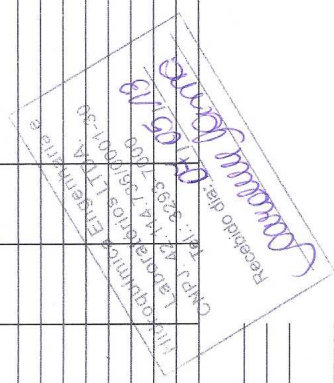 Hidroquímica Engenharia e
Laboratórios LTDA.
CNPJ 42.114.756/0001-30
Tel.: 3293-7000
Recebido dia: 07/05/13